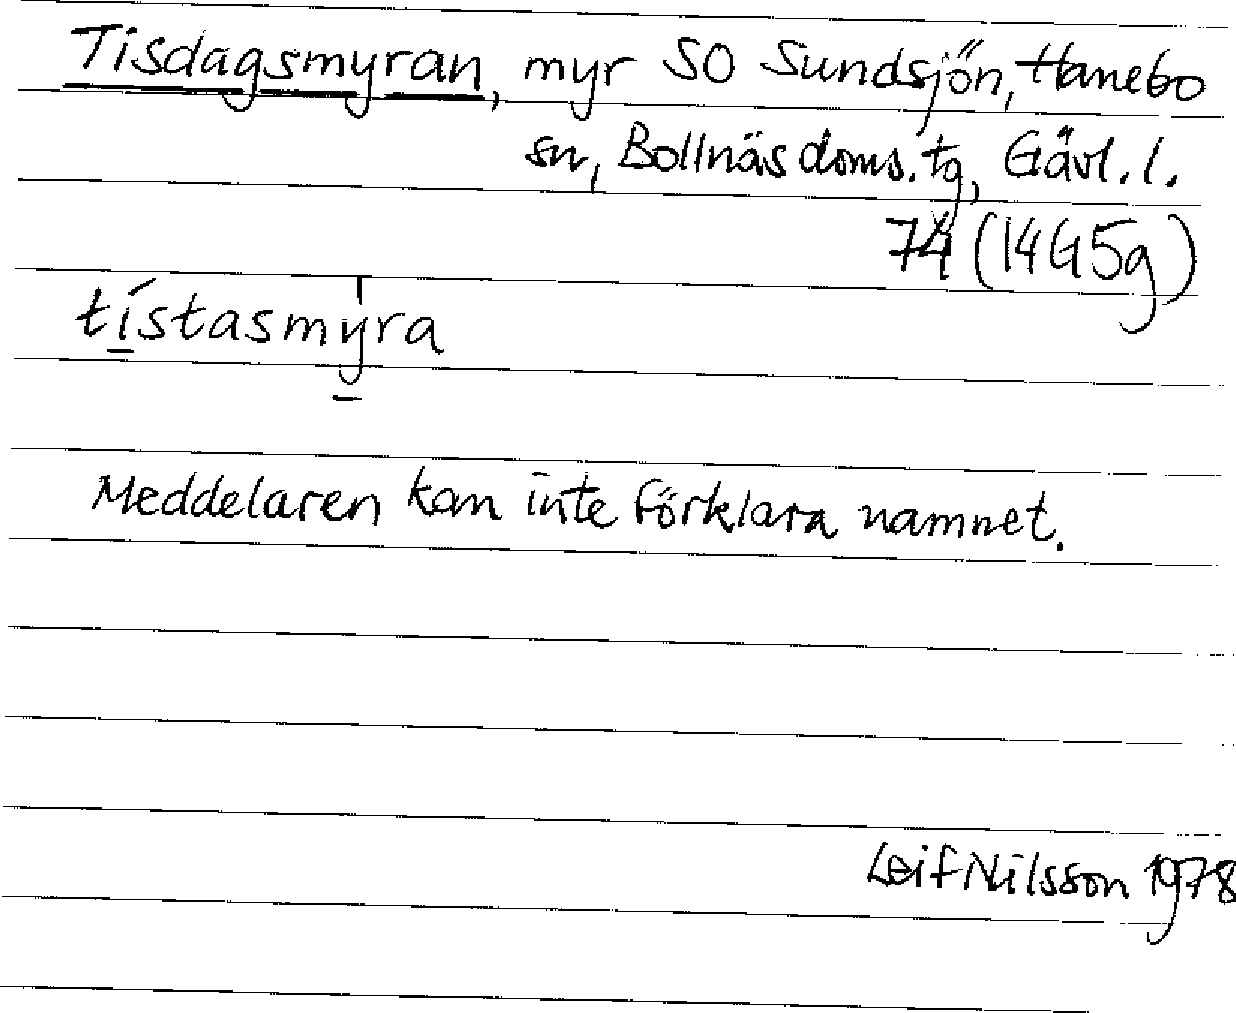 Tisdagsmyran, myr SO Sundsjön, Hanebo
sn, Bollnäs doms. tg, Gävl. l.
74 (14G5g)
tístasmy̍ra
Meddelaren kan inte förklara namnet.
Leif Nilsson 1978